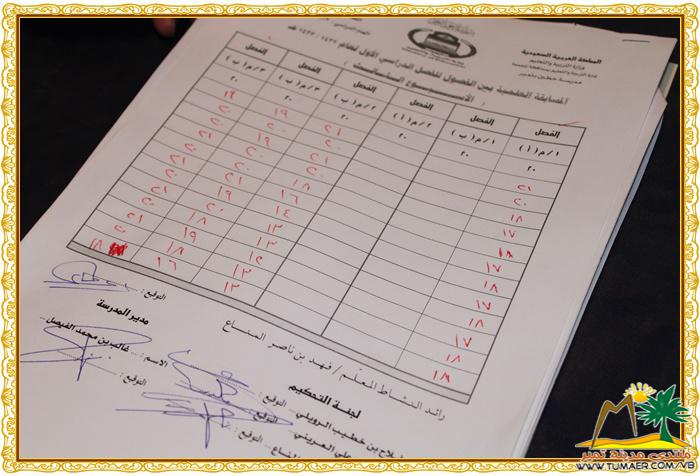 المملكة العربية السعودية
وزارة التربية والتعليم
المسابقة العلمية بين الفصول للفصل الدراسي الأول لعام ١٤٣٢ / ١٤٣٣ هـ
الأسبوع الثالث
الفصل الفصل الفصل الفصل الفصل الفصل
١/م (أ) ١/م (ب) ٢/م (أ) ٢/م (ب) ٣/م (أ) ٣/م (ب)
٢٠ ٢٠ ٢٠ ٢٠ ٢٠ ٢٠
٢١ ٢١ ١٩ ١٩
٢٠ ٢٠ ٢٠ ٢٠
١٨ ٢٠ ٢١ ٢١
١٧ ١٨ ٢٠ ٢٠
١٨ ١٦ ١٩ ٢١
١٧ ١٤ ٢٠ ٢٠
١٨ ١٣ ١٨ ٢١
١٧ ١٣ ١٩ ٢٠
١٨ ١٤ ١٨ ١٨
١٧ ١٣ ١٦
١٨ ١٣
١٩
رائد النشاط المعلم / فهد بن ناصر المناع
التوقيع :
مدير المدرسة
الاسم : ... غالب بن محمد الفيصل ...
التوقيع :
لجنة التحكيم
فلاح بن خطيب الرويلي ... التوقيع :
علي العريني ... التوقيع :
المناع ...
منتدى مدينة تمير
WWW.TUMAER.COM/VB